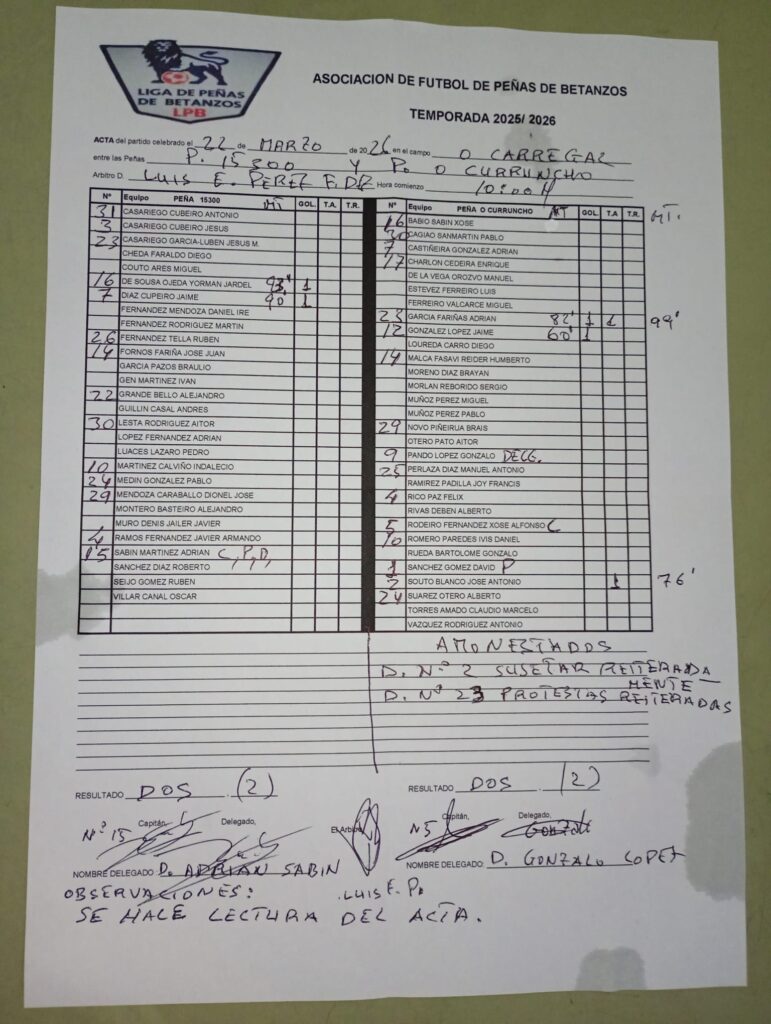 LIGA DE PEÑAS
DE BETANZOS
LPB
ASOCIACION DE FUTBOL DE PEÑAS DE BETANZOS
TEMPORADA 2025/ 2026
ACTA del partido celebrado el 22 de MARZO de 2026 en el campo O CARREGAL
entre las Peñas P. 15300 Y P. O CURRUNCHO
Arbitro D. LUIS E. PEREZ Hora comienzo 10:00H
Nº Equipo PEÑA 15300 MT GOL. T.A. T.R.
31 CASARIEGO CUBEIRO ANTONIO
3 CASARIEGO CUBEIRO JESUS
23 CASARIEGO GARCIA-LUBEN JESUS M.
CHEDA FARALDO DIEGO
COUTO ARES MIGUEL
16 DE SOUSA OJEDA YORMAN JARDEL 93' 1
7 DIAZ CUPEIRO JAIME 90' 1
FERNANDEZ MENDOZA DANIEL IRE
FERNANDEZ RODRIGUEZ MARTIN
26 FERNANDEZ TELLA RUBEN
14 FORNOS FARIÑA JOSE JUAN
GARCIA PAZOS BRAULIO
GEN MARTINEZ IVAN
22 GRANDE BELLO ALEJANDRO
GUILLIN CASAL ANDRES
30 LESTA RODRIGUEZ AITOR
LOPEZ FERNANDEZ ADRIAN
LUACES LAZARO PEDRO
10 MARTINEZ CALVIÑO INDALECIO
24 MEDIN GONZALEZ PABLO
29 MENDOZA CARABALLO DIONEL JOSE
MONTERO BASTEIRO ALEJANDRO
MURO DENIS JAILER JAVIER
4 RAMOS FERNANDEZ JAVIER ARMANDO
15 SABIN MARTINEZ ADRIAN C,P,D,
SANCHEZ DIAZ ROBERTO
SEIJO GOMEZ RUBEN
VILLAR CANAL OSCAR
Nº Equipo PEÑA O CURRUNCHO MT GOL. T.A T.R. MT.
16 BABIO SABIN XOSE
30 CAGIAO SANMARTIN PABLO
7 CASTIÑEIRA GONZALEZ ADRIAN
17 CHARLON CEDEIRA ENRIQUE
DE LA VEGA OROZVO MANUEL
ESTEVEZ FERREIRO LUIS
FERREIRO VALCARCE MIGUEL
23 GARCIA FARIÑAS ADRIAN 82' 1 1 99'
12 GONZALEZ LOPEZ JAIME 60' 1
LOUREDA CARRO DIEGO
14 MALCA FASAVI REIDER HUMBERTO
MORENO DIAZ BRAYAN
MORLAN REBORIDO SERGIO
MUÑOZ PEREZ MIGUEL
MUÑOZ PEREZ PABLO
29 NOVO PIÑEIRUA BRAIS
OTERO PATO AITOR
9 PANDO LOPEZ GONZALO DELG.
25 PERLAZA DIAZ MANUEL ANTONIO
RAMIREZ PADILLA JOY FRANCIS
4 RICO PAZ FELIX
RIVAS DEBEN ALBERTO
5 RODEIRO FERNANDEZ XOSE ALFONSO C
10 ROMERO PAREDES IVIS DANIEL
RUEDA BARTOLOME GONZALO
1 SANCHEZ GOMEZ DAVID P
2 SOUTO BLANCO JOSE ANTONIO 1 76'
24 SUAREZ OTERO ALBERTO
TORRES AMADO CLAUDIO MARCELO
VAZQUEZ RODRIGUEZ ANTONIO
AMONESTADOS
D. Nº 2 SUSETAR REITERADA
MENTE
D. Nº 23 PROTESTAS REITERADAS
RESULTADO DOS (2) RESULTADO DOS (2)
Capitán, Delegado, El Arbitro Capitán, Delegado,
Nº 15 N5
NOMBRE DELEGADO: D. ADRIAN SABIN NOMBRE DELEGADO: D. GONZALO LOPEZ
OBSERVACIONES: LUIS E. P.
SE HACE LECTURA DEL ACTA.